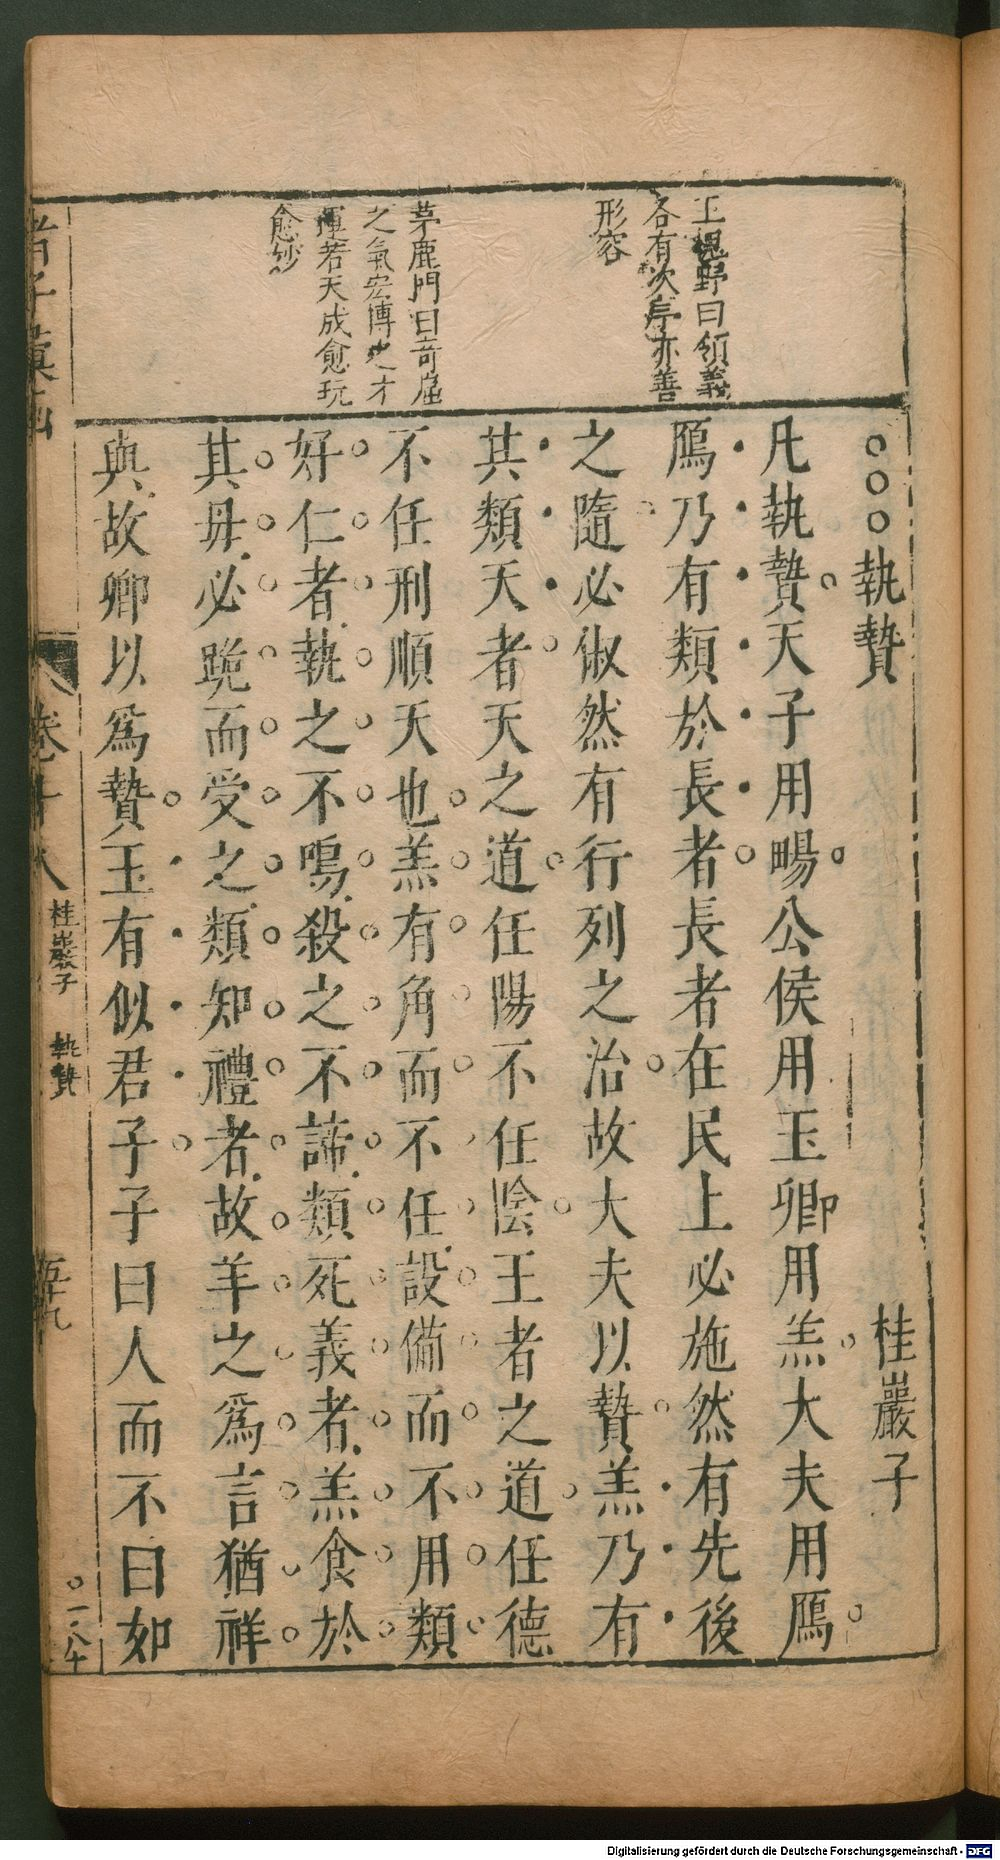 執贄
桂巖子
凡執贄天子用暢公侯用玉卿用羔大夫用鴈
鴈乃有類於長者長者在民上必施然有先後
之隨必俶然有行列之治故大夫以贄羔乃有
其類天者天之道任陽不任陰王者之道任德
不任刑順天也羔有角而不任設備而不用類
好仁者執之不鳴殺之不諦類死義者羔食於
其母必跪而受之類知禮者故羊之爲言猶祥
與故卿以爲贄玉有似君子子曰人而不曰如
王槐野曰領義
各有次序亦善
形容
茅鹿門曰奇崛
之氣宏博之才
運若天成愈玩
愈妙
諸子彙函
卷十八
桂巖子
執贄
五十九